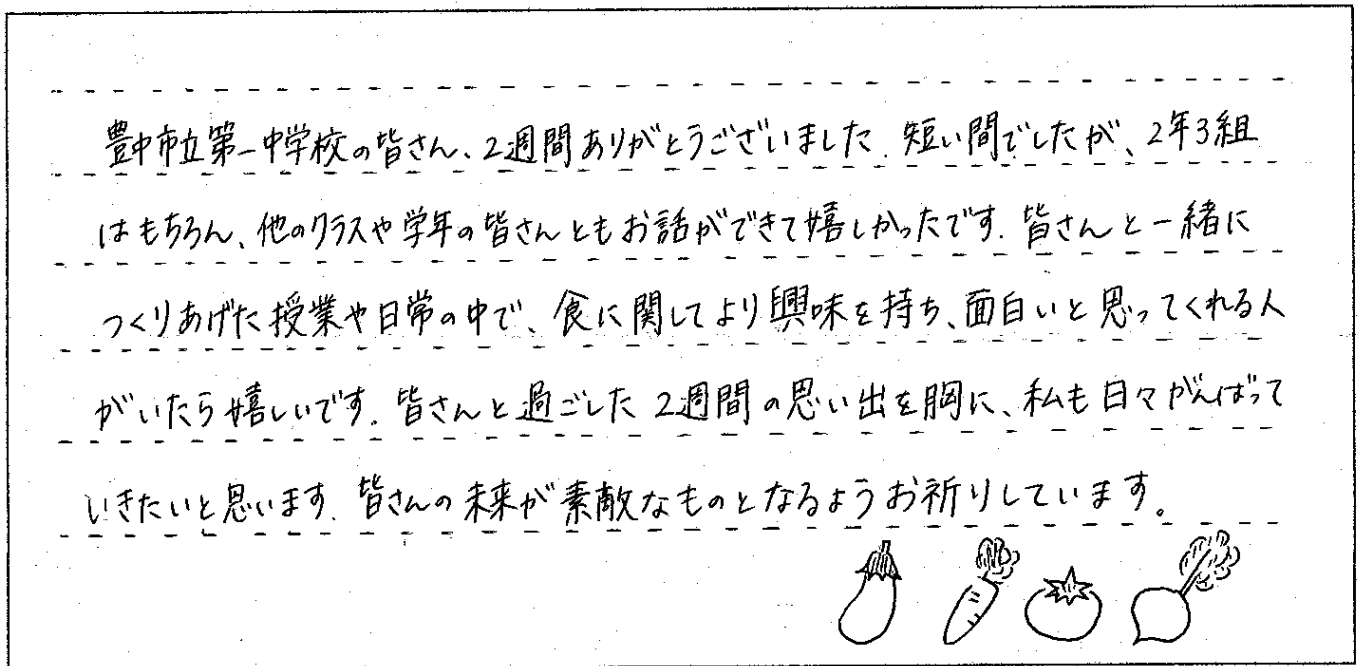 豊中市立第一中学校の皆さん、2週間ありがとうございました。短い間でしたが、2年3組
はもちろん、他のクラスや学年の皆さんともお話ができて嬉しかったです。皆さんと一緒に
つくりあげた授業や日常の中で、食に関してより興味を持ち、面白いと思ってくれる人
がいたら嬉しいです。皆さんと過ごした2週間の思い出を胸に、私も日々がんばって
いきたいと思います。皆さんの未来が素敵なものとなるようお祈りしています。